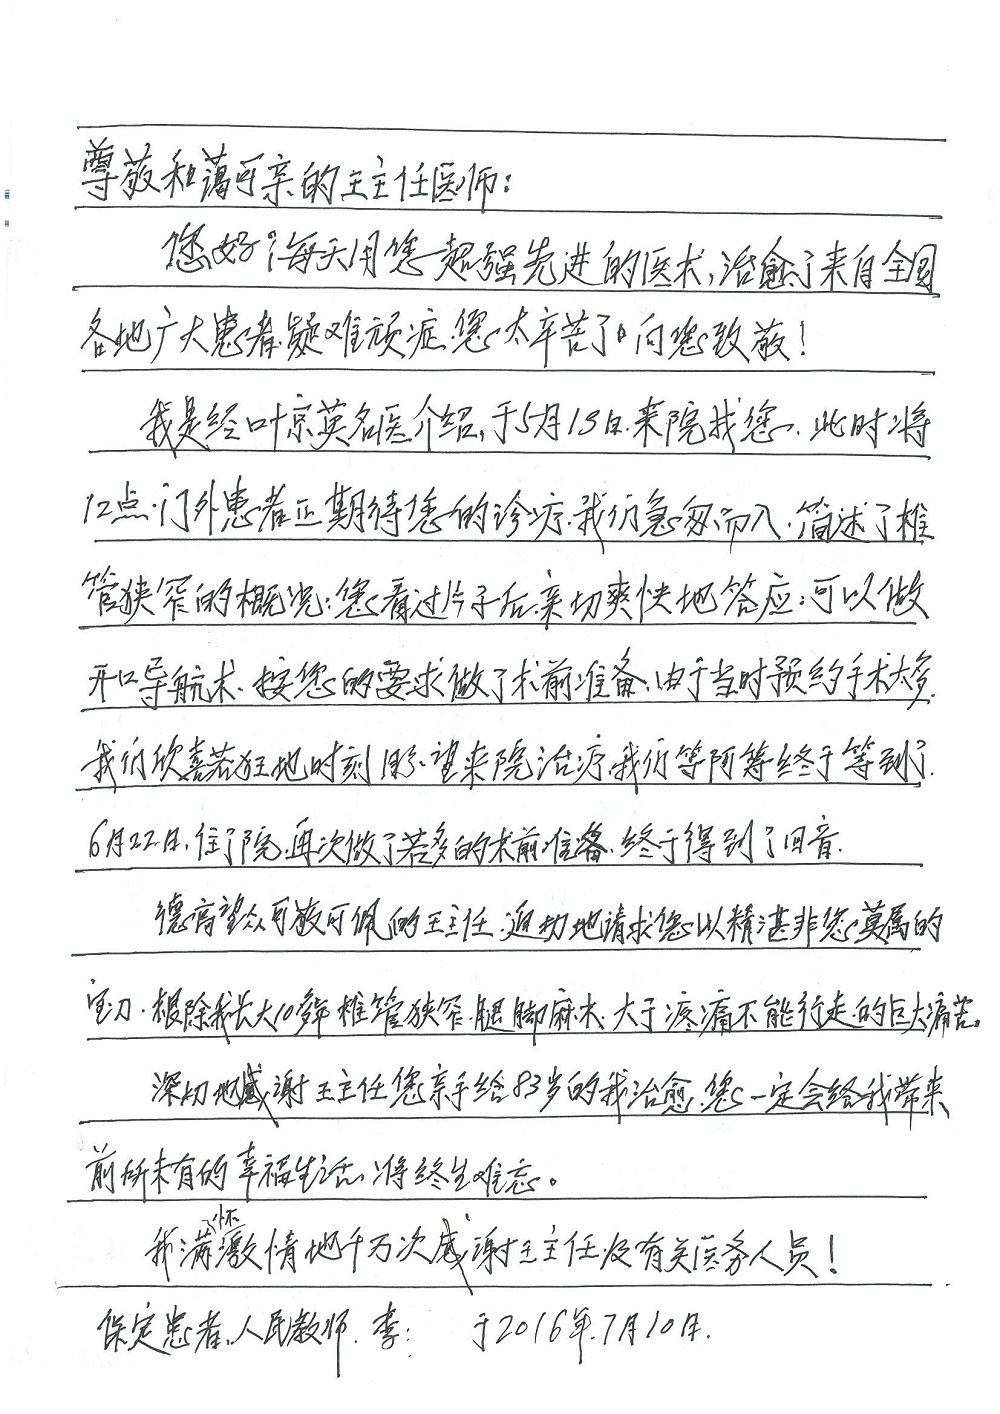 尊敬和蔼可亲的王主任医师：
您好！每天用您超强先进的医术，治愈了来自全国
各地广大患者疑难顽症.您太辛苦了。向您致敬！
我是经叶京英名医介绍，于5月13日.来院找您、此时将
12点.门外患者正期待您的诊疗.我们急匆而入.简述了椎
管狭窄的概况：您看过片子后.亲切爽快地答应：可以做
开口导航术.按您的要求做了术前准备、由于当时预约手术太多.
我们欣喜若狂地时刻盼望来院治疗.我们等阿等终于等到了.
6月22日.住了院.再次做了若多的术前准备.终于得到了回音.
德高望众可敬可佩的王主任.迫切地请求您以精湛非您莫属的
宝刀.根除我长大10多年椎管狭窄.腿脚麻木.大于疼痛不能行走的巨大痛苦。
深切地感谢王主任您亲手给83岁的我治愈.您一定会给我带来
前所未有的幸福生活、将终生难忘。
我满怀激情地千万次感谢王主任及有关医务人员！
保定患者、人民教师.李： 于2016年.7月10日.